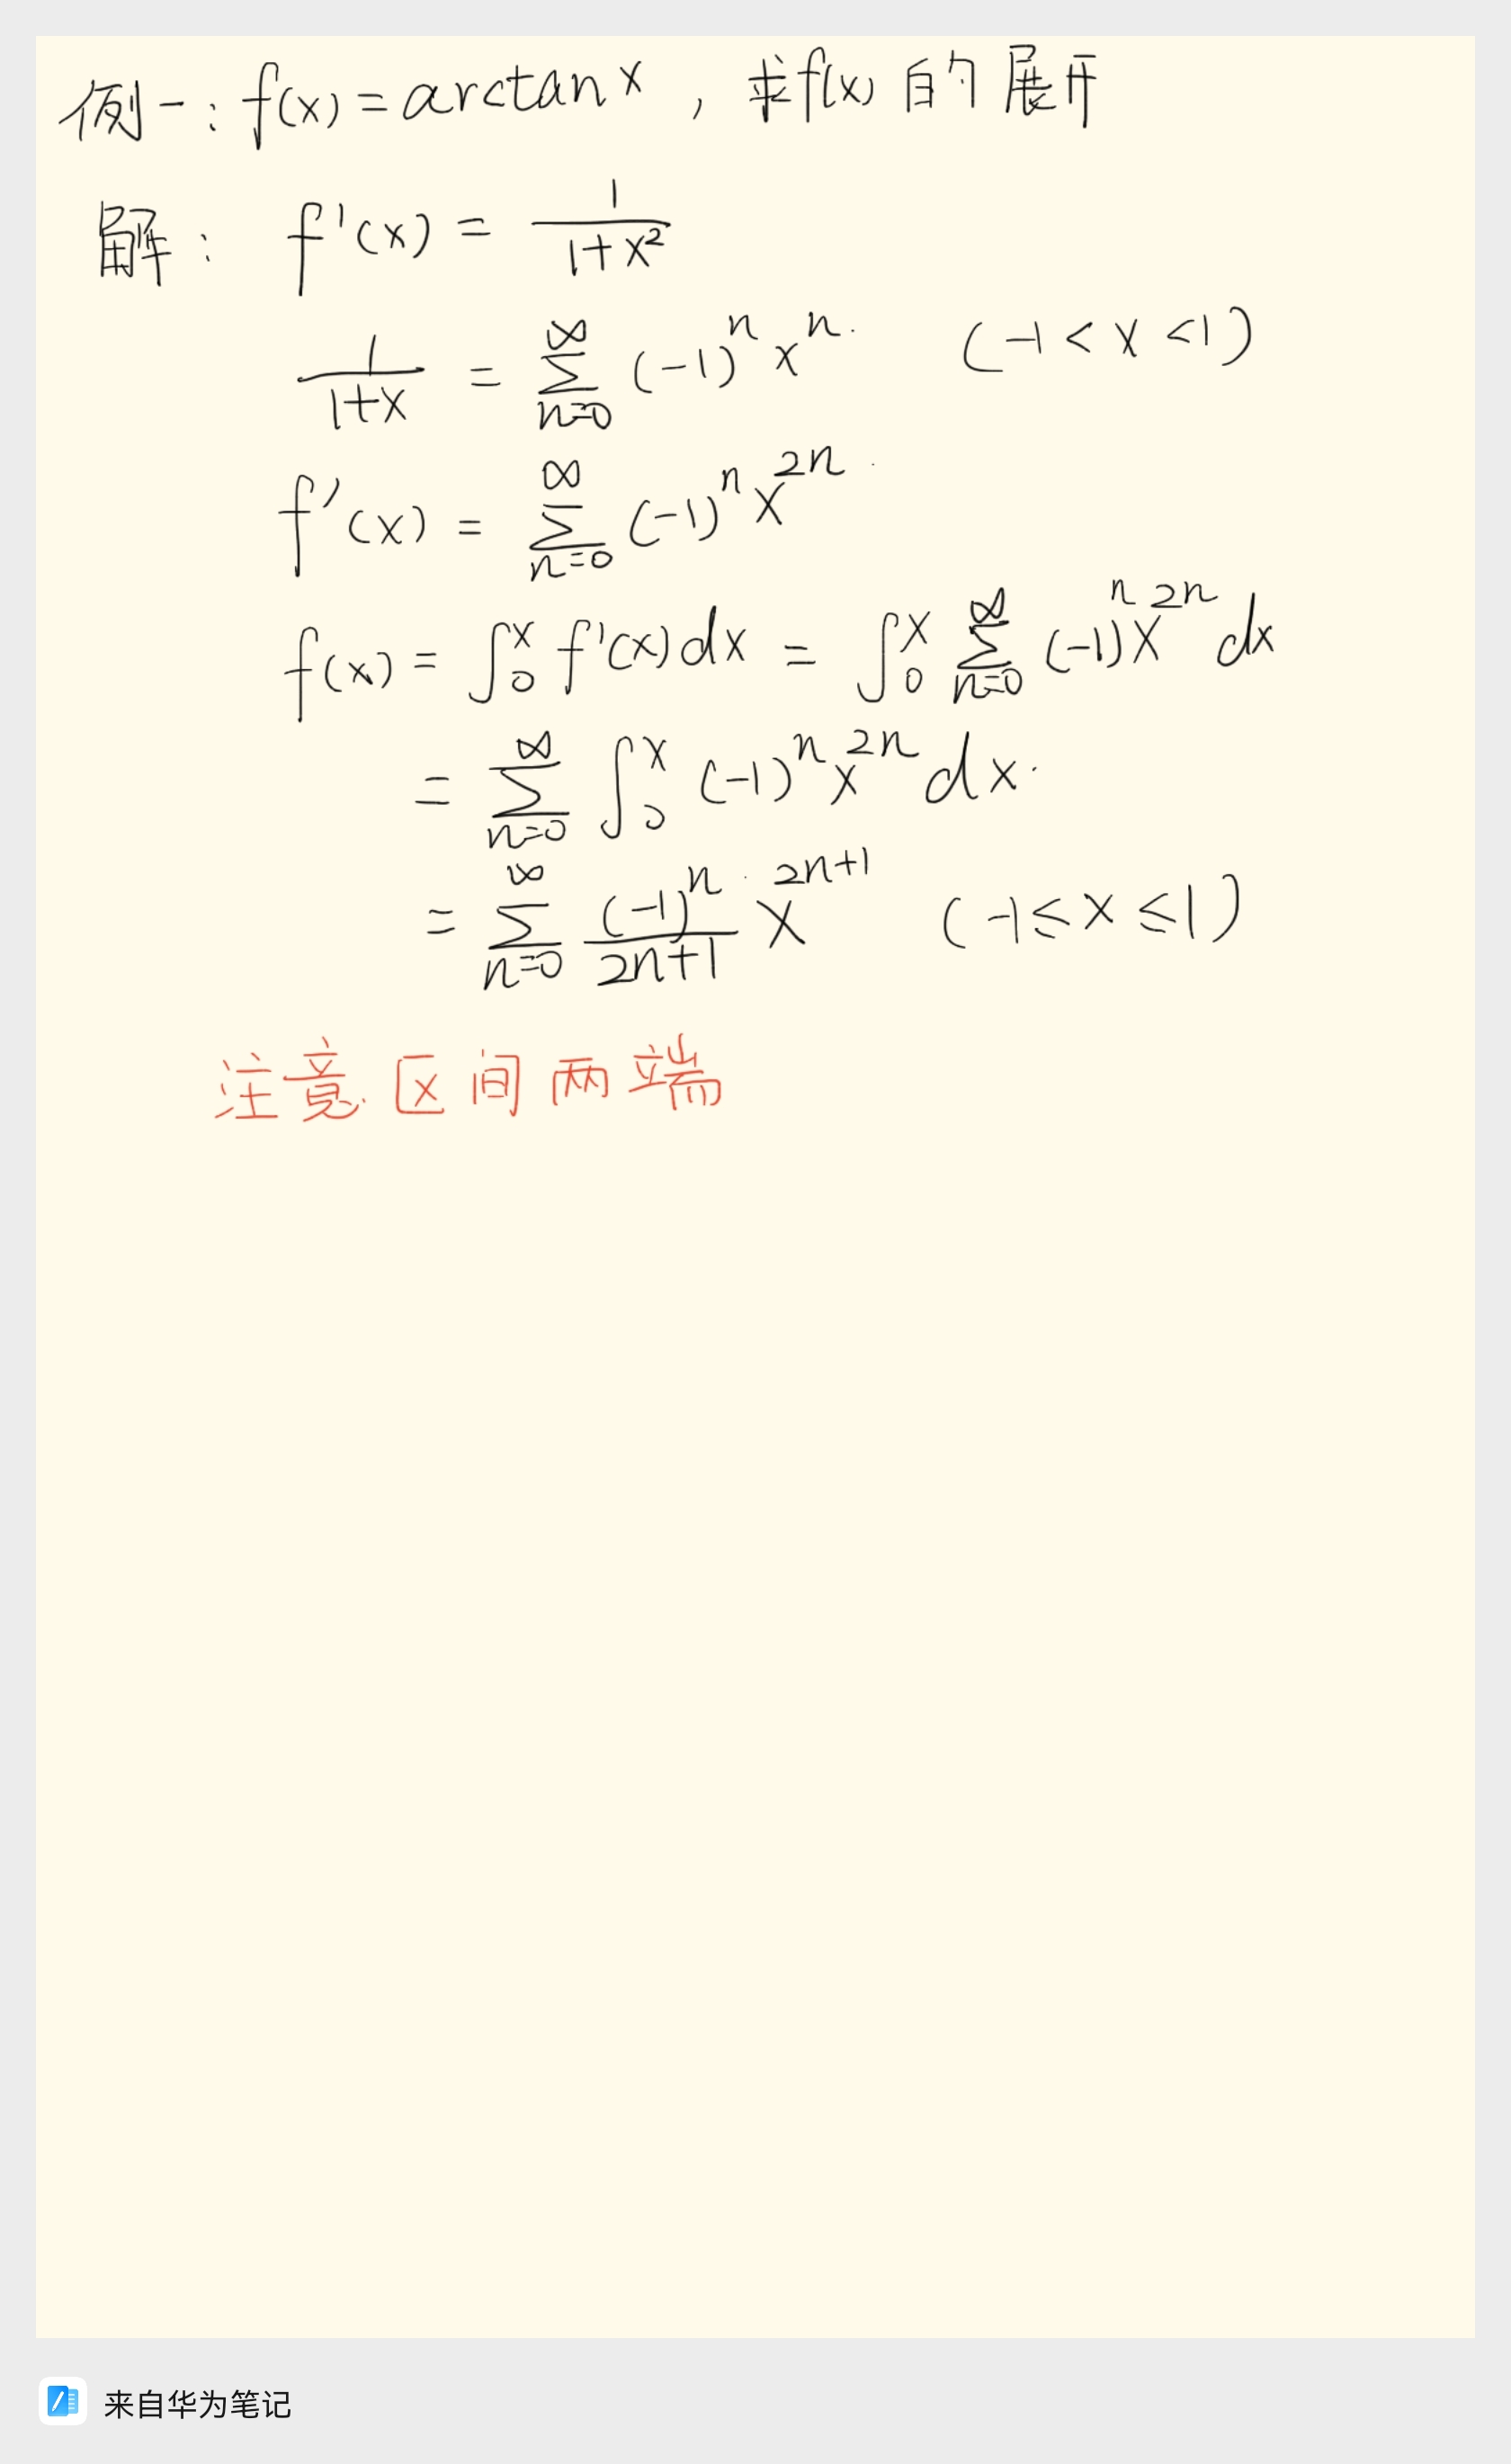 例一:f(x)=arctanx,求f(x)的展开
解: f'(x) = 1/(1+x²)
1/(1+x) = ∑_{n=0}^{∞} (-1)^n x^n. (-1<x<1)
f'(x) = ∑_{n=0}^{∞} (-1)^n x^{2n}
f(x) = ∫_0^x f'(x)dx = ∫_0^x ∑_{n=0}^{∞} (-1)^n x^{2n} dx
= ∑_{n=0}^{∞} ∫_0^x (-1)^n x^{2n} dx.
= ∑_{n=0}^{∞} (-1)^n/(2n+1) x^{2n+1} (-1≤x≤1)
注意区间两端
来自华为笔记